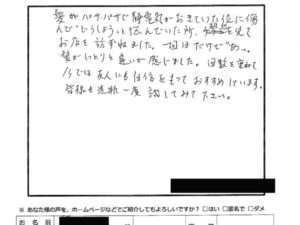 髪がパサパサで静電気がおきていた位に悩
んで"どうしよう"と悩んでいた所、を見て
お店を訪ずねました。一回だけで"あっ"。
髪がしっとり違いが感じました。回数を重ねて
今では友人にも自信をもっておすすめしています。
皆様も是非一度試してみて下さい。
※ あなた様の声を、ホームページなどでご紹介してもよろしいですか？ □はい □匿名で □ダメ
お名前